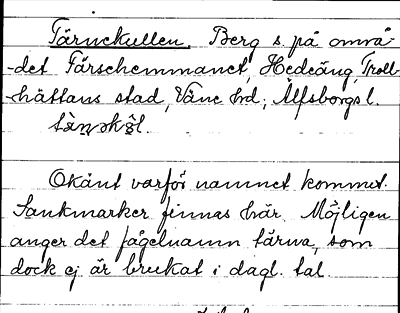 Tärnekullen. Berg s. på områ-
-det Fårschemmanet, Hedeäng, Troll-
-hättans stad, Väne hrd; Älfsborgs l.
Okänt varför namnet kommet.
Sankmarker finnas här. Möjligen
anger det fågelnamn tärna, som
dock ej är brukat i dagl. tal.